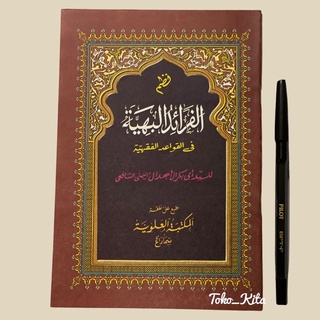 نظم
الفرائد البهية
في القواعد الفقهية
للسيد أبي بكر الأهدل اليمني الشافعي
طبع على نفقة
المكتبة العلوية
سماراغ
PILOT
Toko_Kita